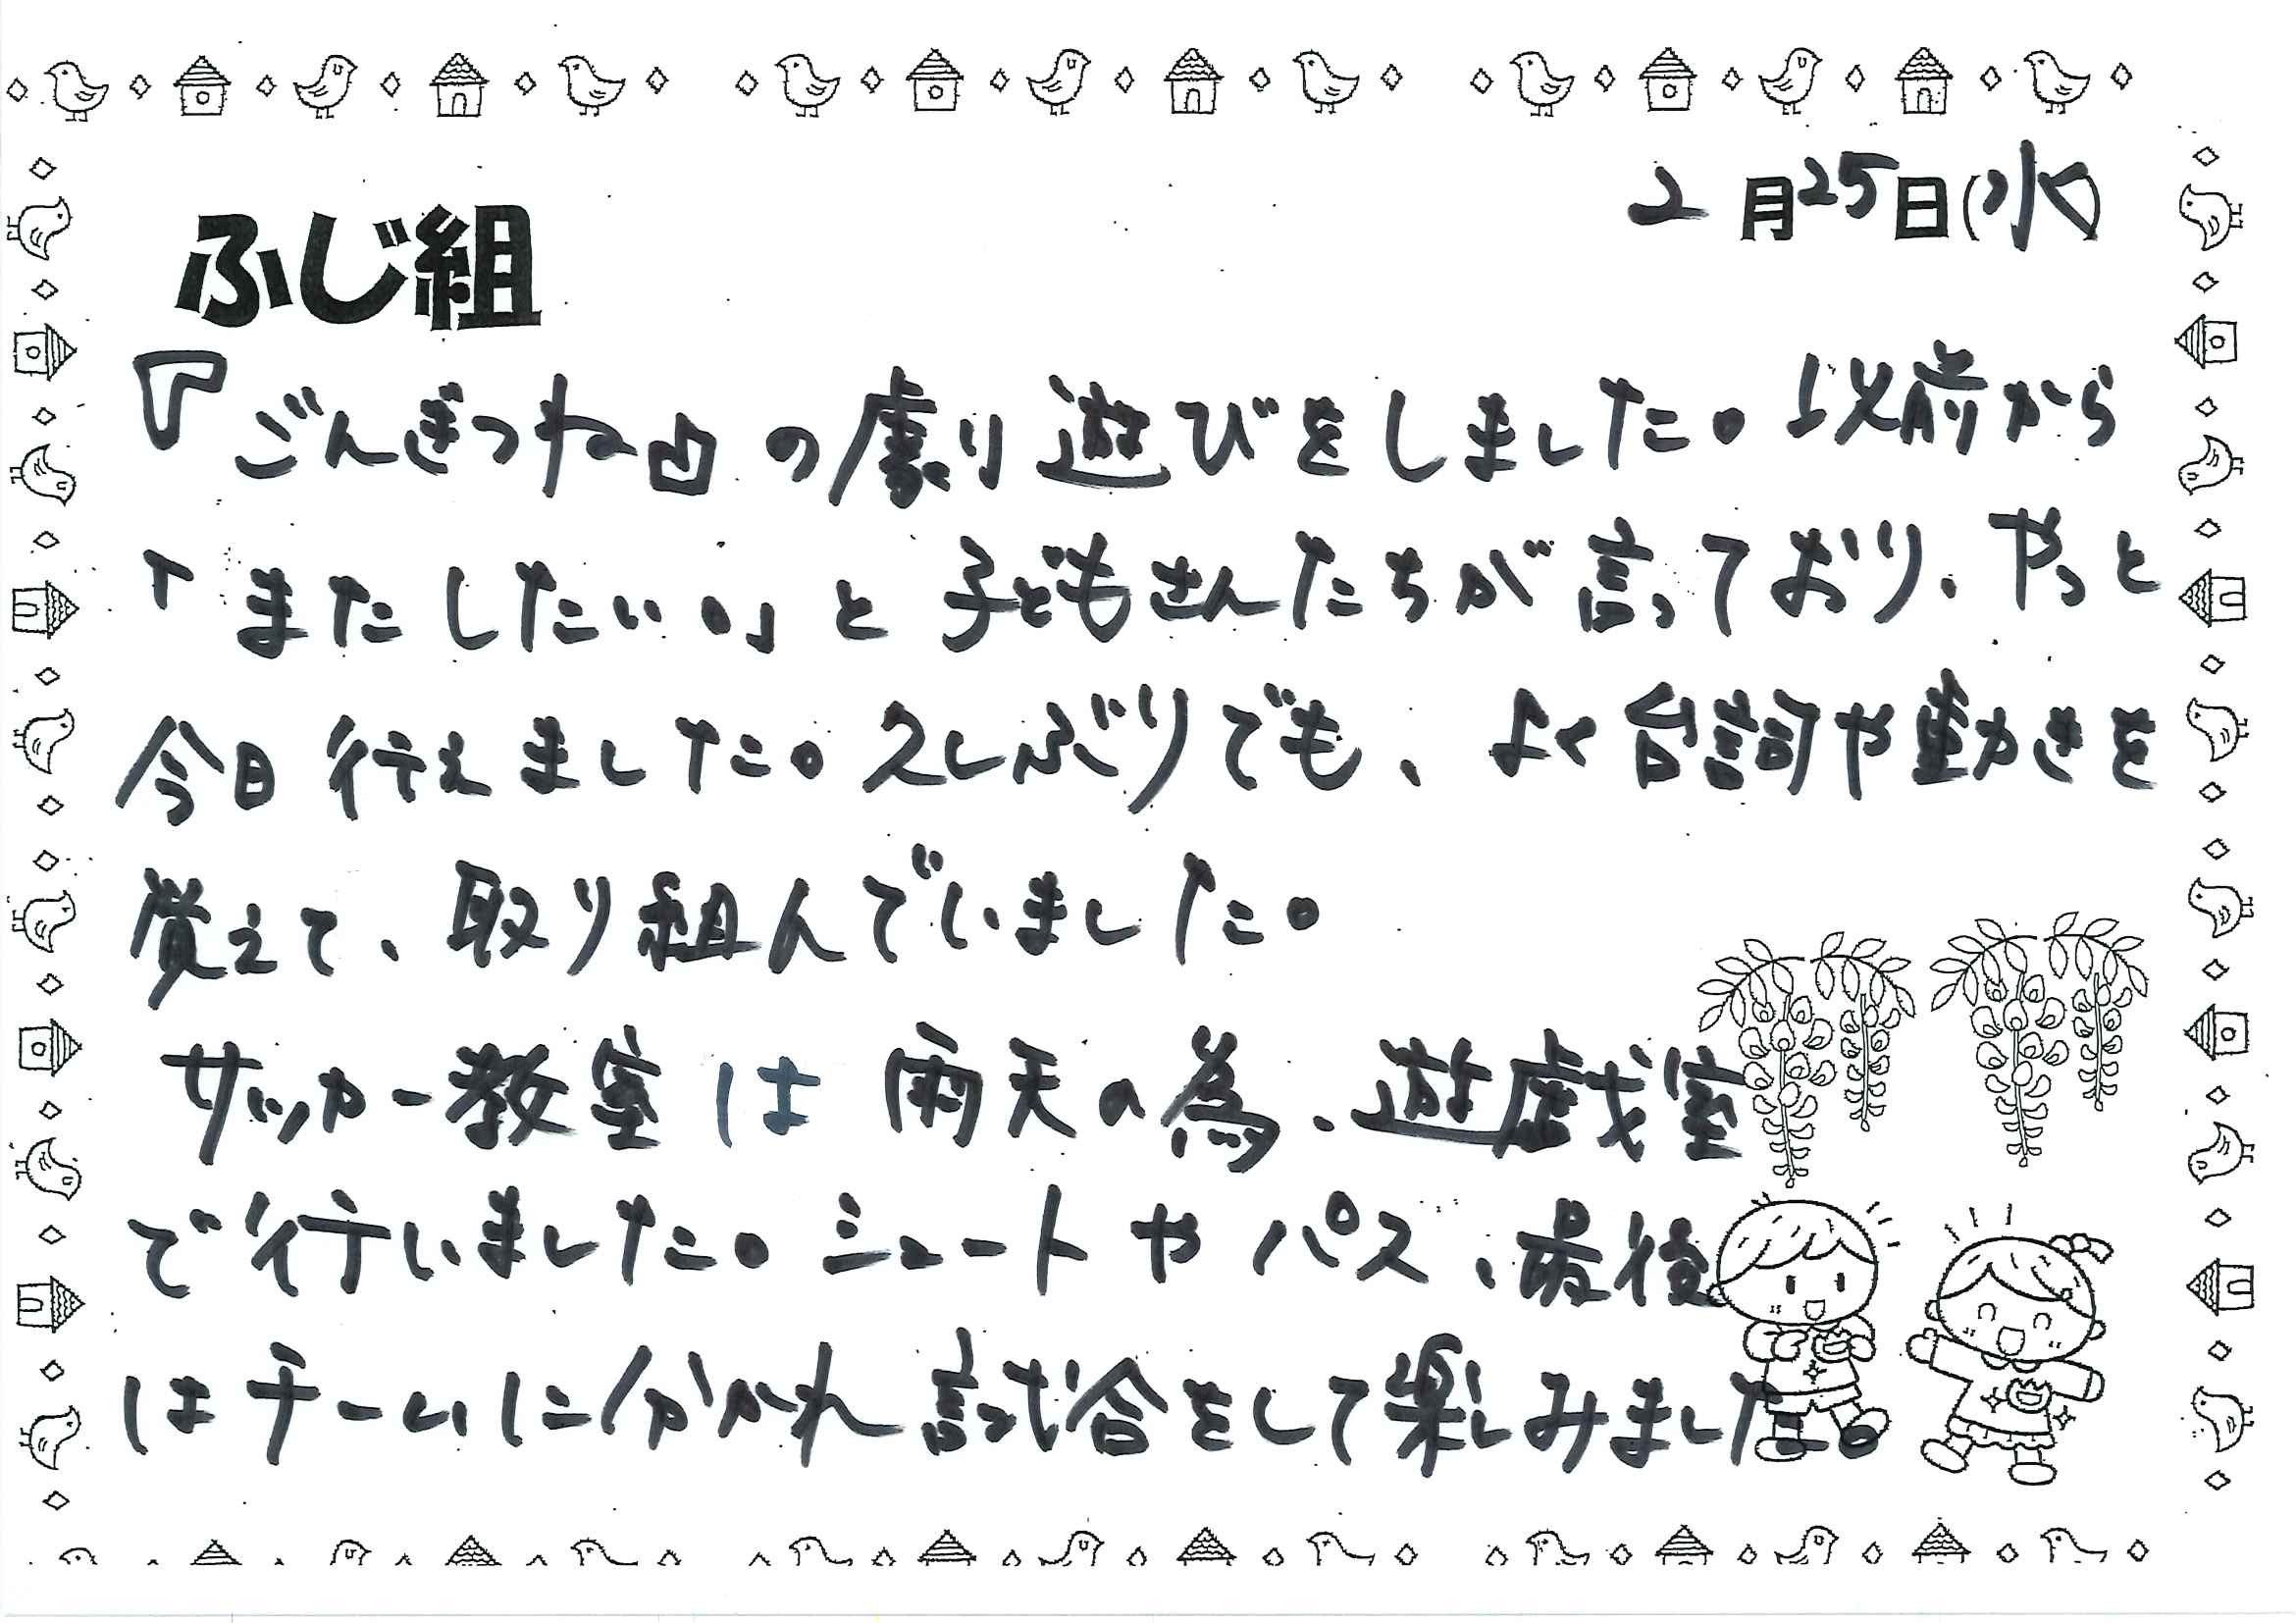 2月25日(水)
ふじ組
『ごんぎつね』の劇遊びをしました。以前から
「またしたい。」と子どもさんたちが言っており、やっと
今日行えました。久しぶりでも、よく台詞や動きを
覚えて、取り組んでいました。
サッカー教室は雨天の為、遊戯室
で行いました。シュートやパス、最後
はチームに分かれ試合をして楽しみました。